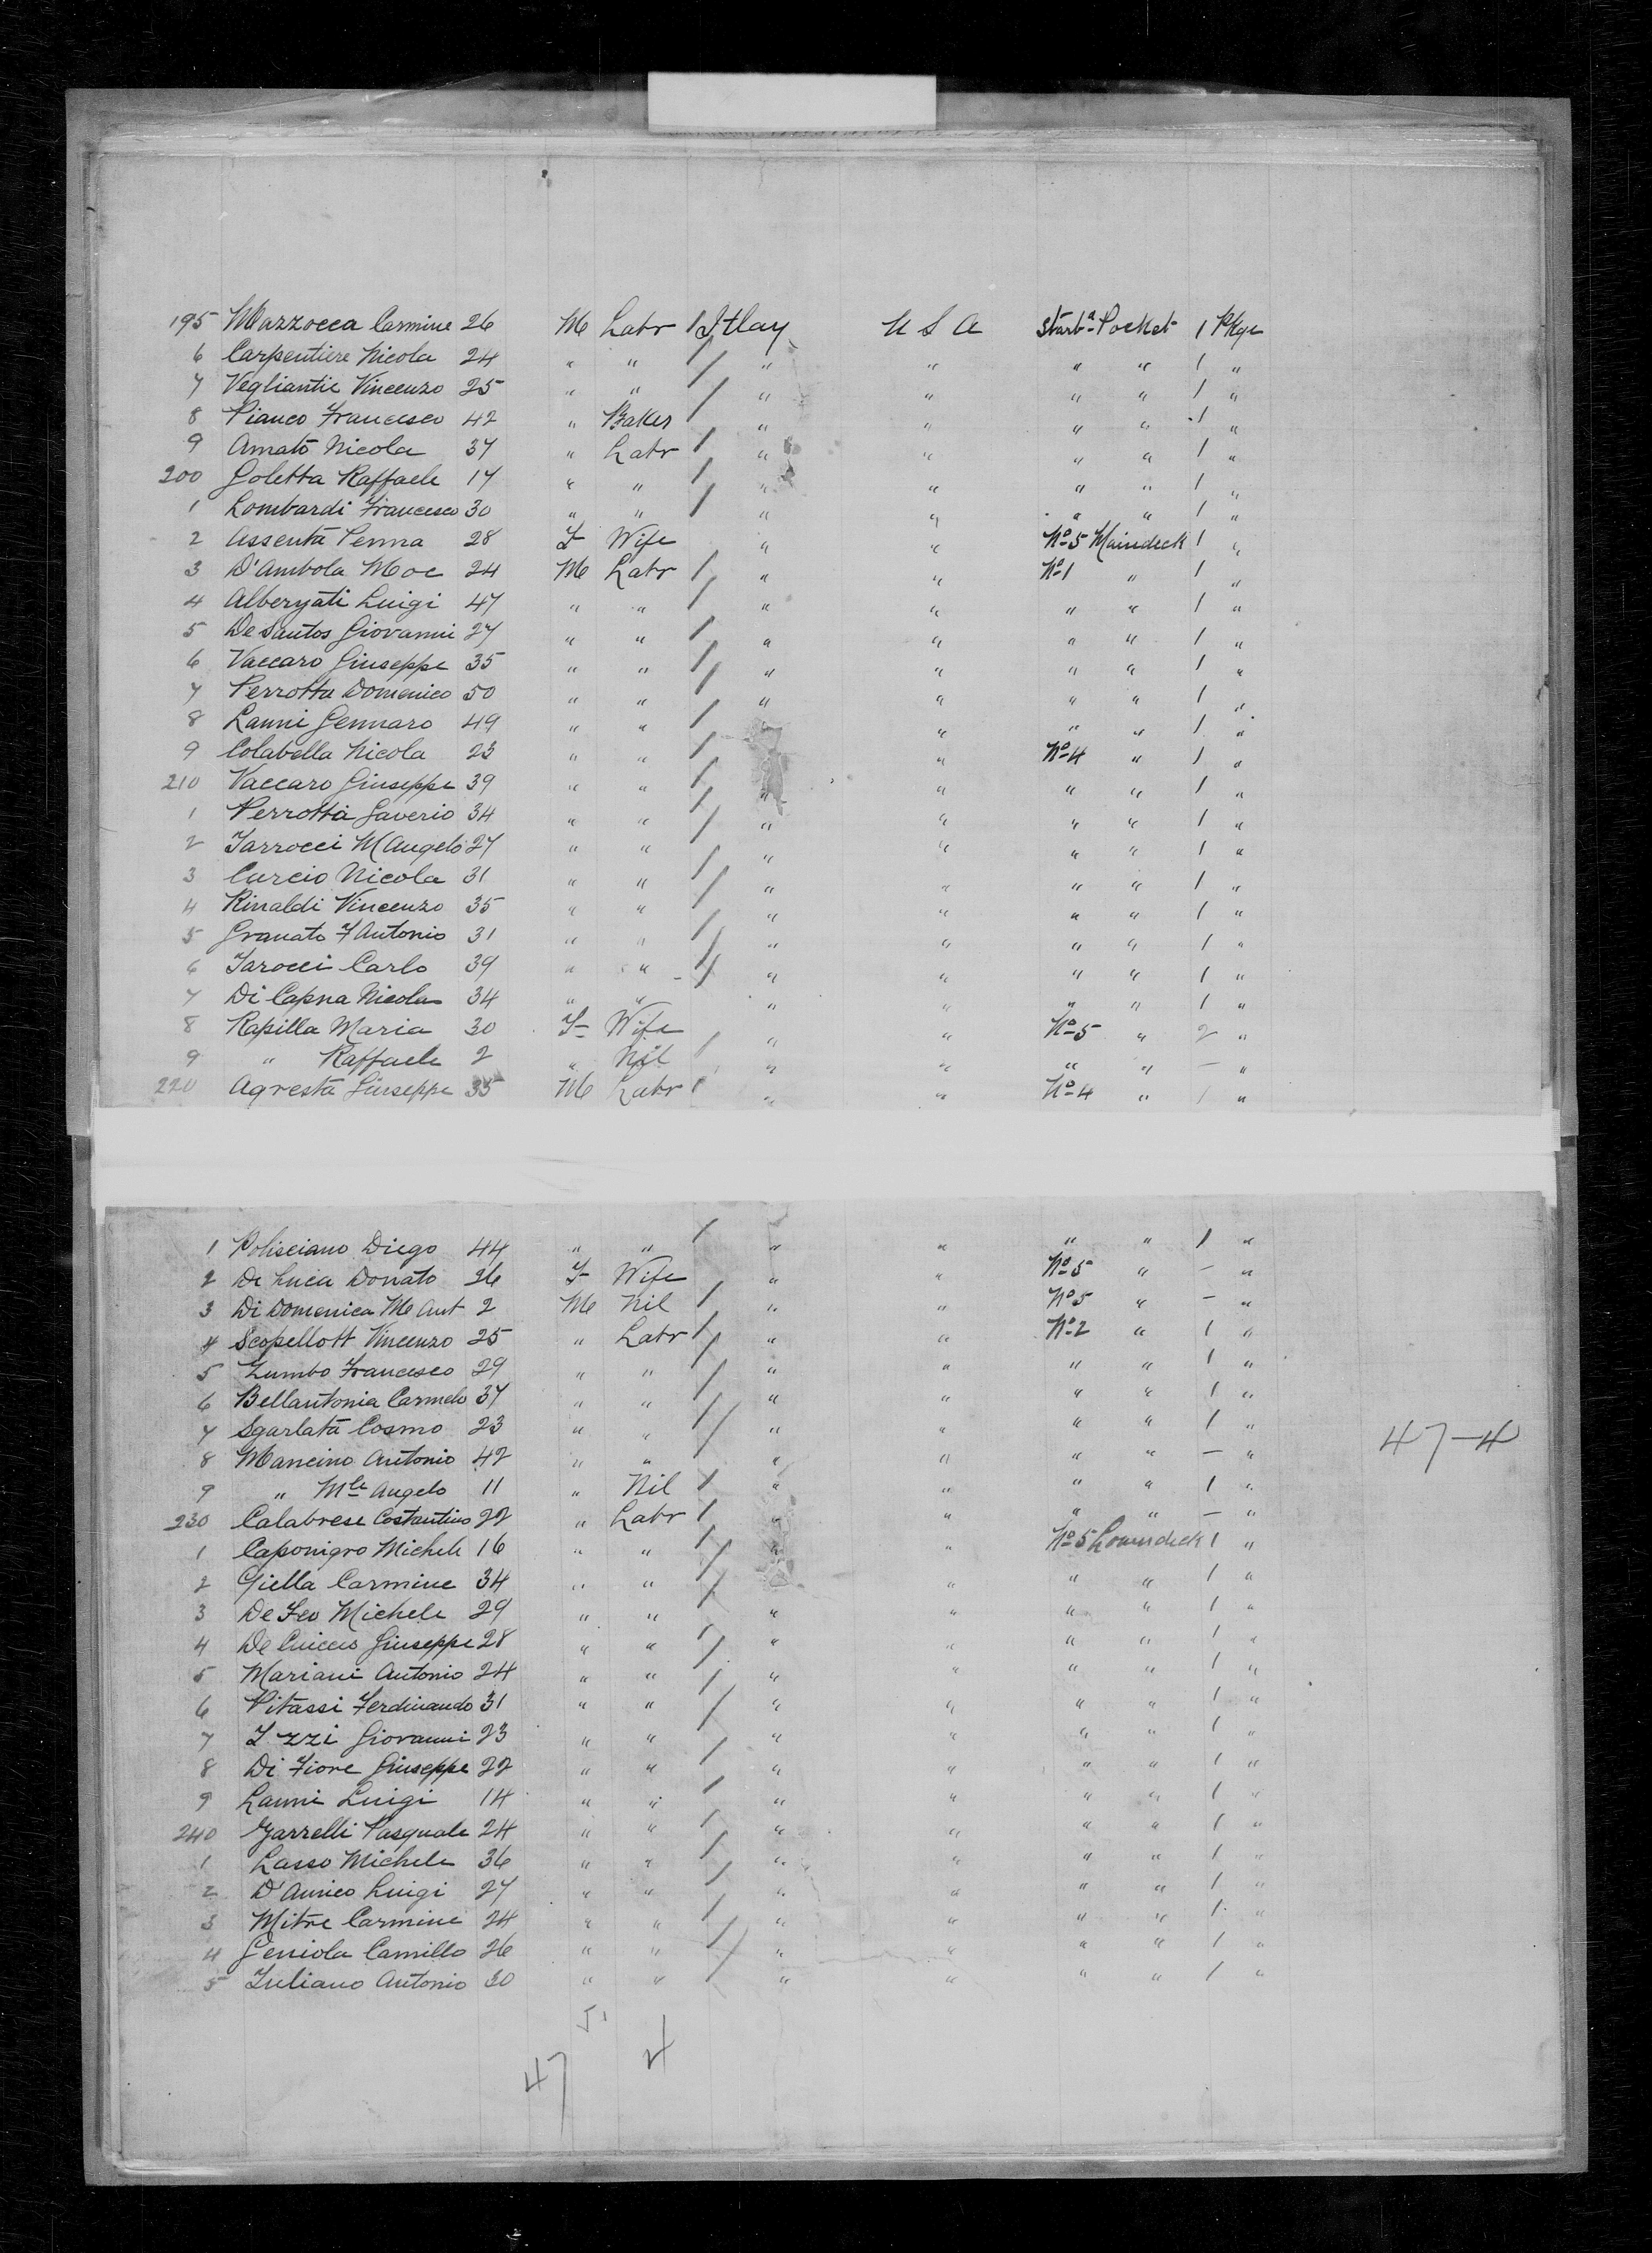 195 Mazzocca Carmine 26 M Labr / Itlay U S A Starbd Pocket 1 Pkge
6 Carpentiere Nicola 24 " " / " " " " 1 "
7 Vegliantie Vincenzo 25 " " / " " " " 1 "
8 Pianco Francesco 42 " Baker / " " " " 1 "
9 Amato Nicola 37 " Labr / " " " " 1 "
200 Goletta Raffaele 17 " " / " " " " 1 "
1 Lombardi Francesco 30 " " / " " " " 1 "
2 Assenta Penna 28 F Wife " " No 5 Maindeck 1 "
3 D'Ambola Moc 24 M Labr / " " No 1 " 1 "
4 Alberyati Luigi 47 " " / " " " " 1 "
5 De Santos Giovanni 27 " " / " " " " 1 "
6 Vaccaro Giuseppe 35 " " / " " " " 1 "
7 Perrotta Domenico 50 " " / " " " " 1 "
8 Lanni Gennaro 49 " " / " " " " 1 "
9 Colabella Nicola 23 " " / " " No 4 " 1 "
210 Vaccaro Giuseppe 39 " " / " " " " 1 "
1 Perrotta Saverio 34 " " / " " " " 1 "
2 Iarrocci M Angelo 27 " " / " " " " 1 "
3 Curcio Nicola 31 " " / " " " " 1 "
4 Rinaldi Vincenzo 35 " " / " " " " 1 "
5 Granato F Antonio 31 " " / " " " " 1 "
6 Iarocci Carlo 39 " " / " " " " 1 "
7 Di Capna Nicola 34 " " " " " " 1 "
8 Rapilla Maria 30 F Wife " " No 5 " 2 "
9 " Raffaele 2 " Nil / " " " " — "
220 Agresta Giuseppe 35 M Labr / " " No 4 " 1 "
1 Polisciano Diego 44 " " / " " " " 1 "
2 De Luca Donato 26 F Wife " " No 5 " — "
3 Di Domenica M Ant 2 M Nil / " " No 5 " — "
4 Scopellott Vincenzo 25 " Labr / " " No 2 " 1 "
5 Zumbo Francesco 29 " " / " " " " 1 "
6 Bellantonia Carmelo 37 " " / " " " " 1 "
7 Sgarlata Cosmo 23 " " / " " " " 1 " 47-4
8 Mancino Antonio 42 " " / " " " " — "
9 " Mle Angelo 11 " Nil / " " " " 1 "
230 Calabrese Costantino 22 " Labr / " " " " — "
1 Caponigro Michele 16 " " / " " No 5 Lowerdeck 1 "
2 Giella Carmine 34 " " / " " " " 1 "
3 De Feo Michele 29 " " / " " " " 1 "
4 De Cuicco Giuseppe 28 " " / " " " " 1 "
5 Mariani Antonio 24 " " / " " " " 1 "
6 Pitassi Ferdinando 31 " " / " " " " 1 "
7 I zzi Giovanni 23 " " " " " " 1 "
8 Di Fiore Giuseppe 22 " " / " " " " 1 "
9 Lanni Luigi 14 " " / " " " " 1 "
240 Garrelli Pasquale 24 " " / " " " " 1 "
1 Lasso Michele 36 " " / " " " " 1 "
2 D'Amico Luigi 27 " " / " " " " 1 "
3 Mitre Carmine 24 " " / " " " " 1 "
4 Geniola Camillo 26 " " / " " " " 1 "
5 Iuliano Antonio 30 " " / " " " " 1 "
51
47 4